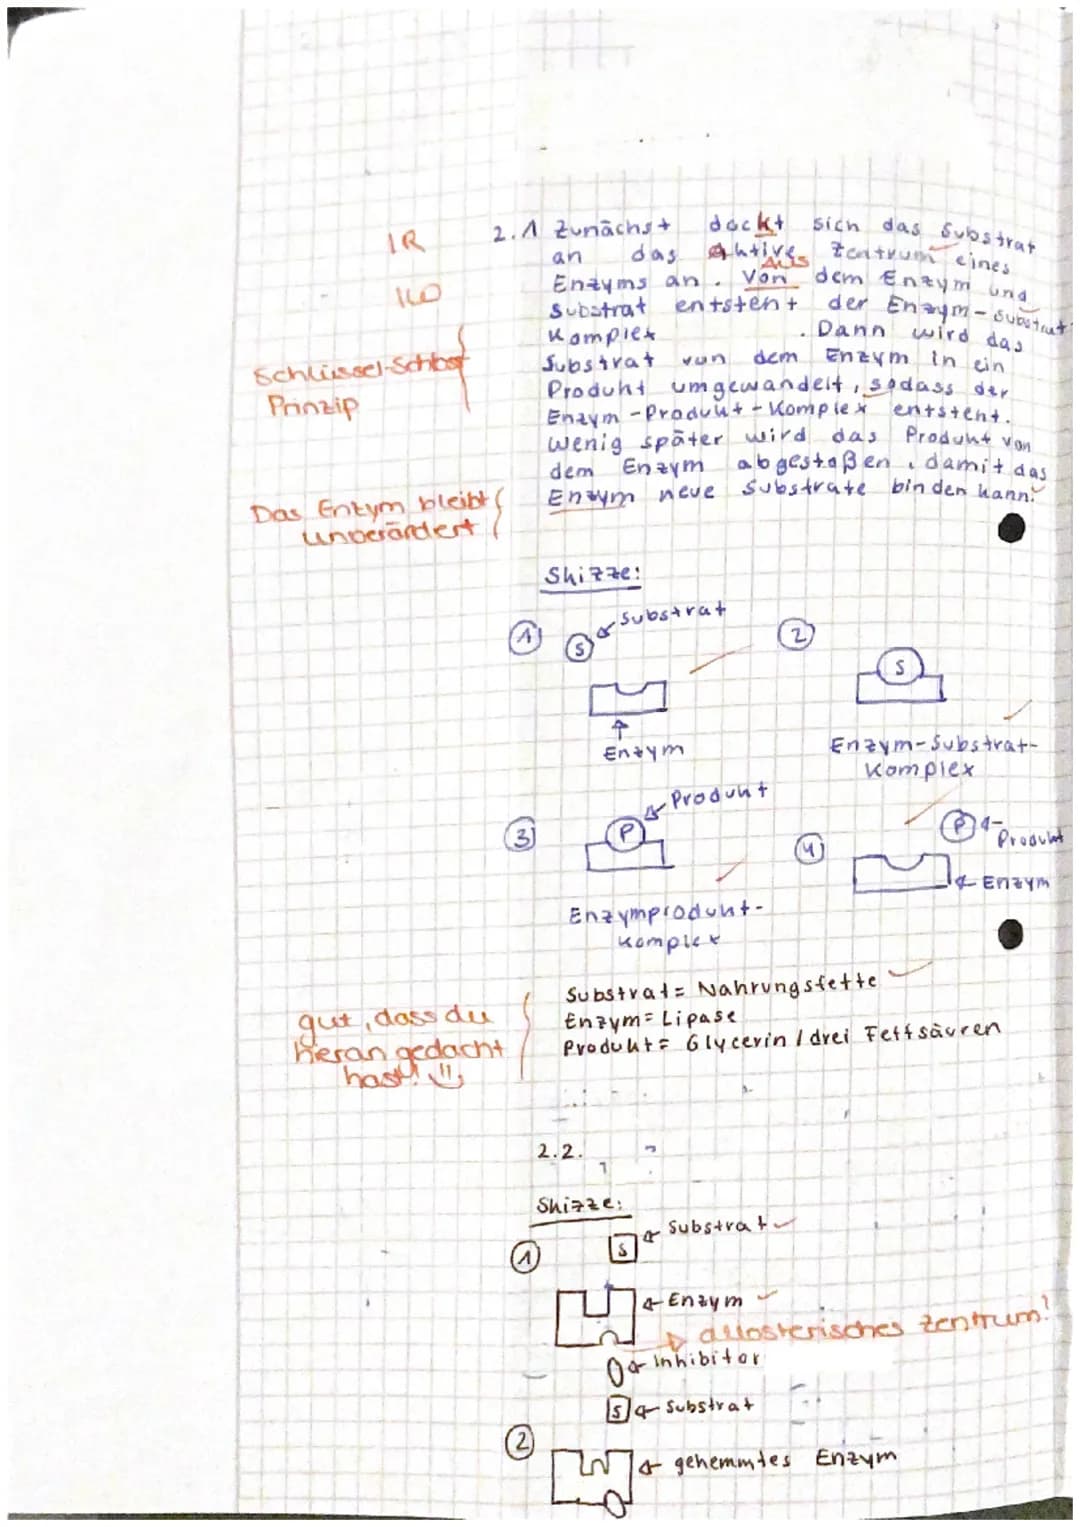 1R
2.1 Zunächst dockt sich das Substrat
an das aktive Zentrum eines
Aus
Enzyms an. Von dem Enzym und
Substrat entsteht der Enzym-Substrat
Komplex. Dann wird das
Substrat von dem Enzym in ein
Produkt umgewandelt, sodass der
Enzym-Produkt-Komplex entsteht.
Wenig später wird das Produkt von
dem Enzym abgestoßen, damit das
Enzym neue Substrate binden kann.
Schlüssel-Schloß
Prinzip
Das Enzym bleibt
unverändert
Skizze:
1 S Substrat
Enzym
2 S
Enzym-Substrat-
Komplex
3 P Produkt
Enzymprodukt-
Komplex
4 P Produkt
Enzym
Substrat= Nahrungsfette
Enzym= Lipase
Produkt= Glycerin / drei Fettsäuren
gut, dass du
heran gedacht
hast!
2.2.
Skizze:
1 S Substrat
Enzym
allosterisches Zentrum!
Inhibitor
S Substrat
2
gehemmtes Enzym